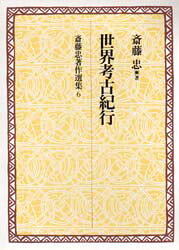 斎藤 忠 著
世界考古紀行
斎藤忠著作選集 6